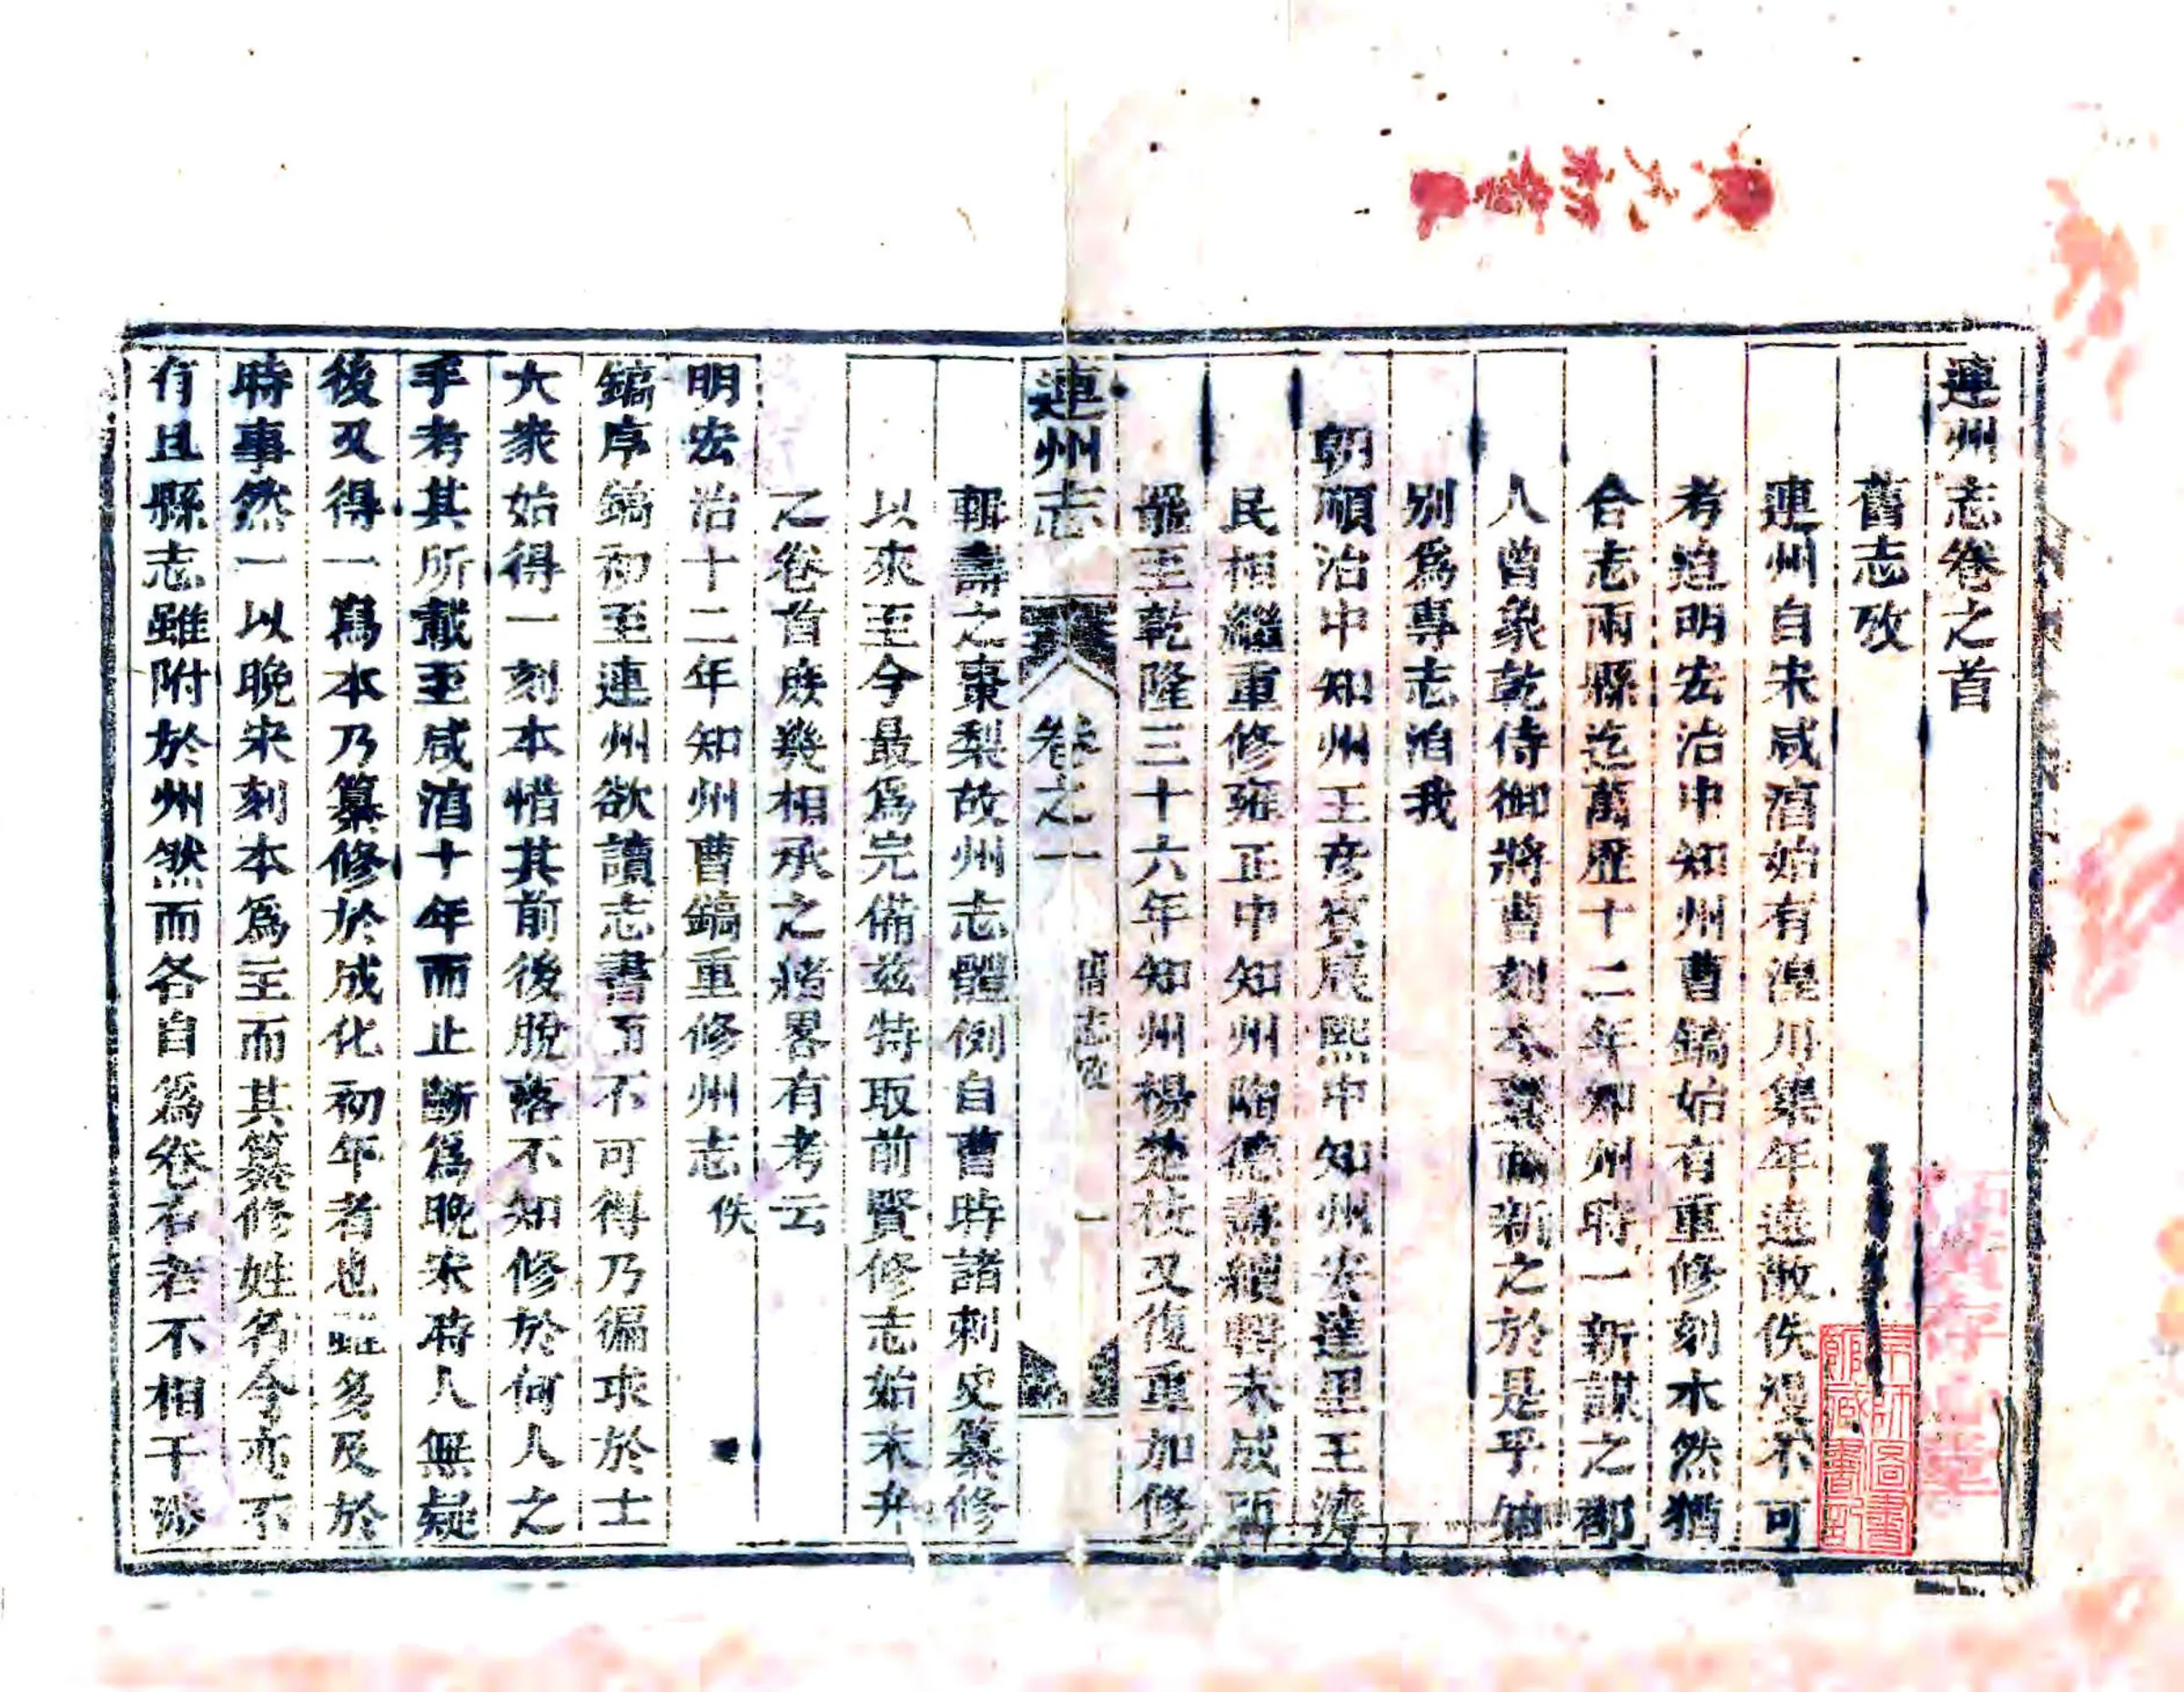 連州志卷之首
舊志攷
連州自宋咸淳始有湟川集年遠散佚漫不可
考迨明宏治中知州曹鎬始有重修刻本然猶
合志兩縣迄萬歷十二年知州時一新謀之郡
人曾象乾侍御將曹刻本 而新之於是乎
別爲專志洎我
朝順治中知州王彦賓康熙中知州安達里王濟
民相繼重修雍正中知州陶德燾續輯未成
至乾隆三十六年知州楊楚枝又復重加修
連州志
卷之一
舊志攷
一
輯壽之棗梨故州志體例自曹時諸刺史纂修
以來至今最爲完備兹特取前賢修志始末弁
之卷首庶幾相承之緒畧有考云
明宏治十二年知州曹鎬重修州志 佚
鎬序鎬初至連州欲讀志書而不可得乃徧求於士
大衆始得一刻本惜其前後脫落不知修於何人之
手考其所載至咸淳十年而止斷爲晚宋時人無疑
後又得一寫本乃纂修於成化初年者也雖多及於
時事然一以晚宋刻本爲主而其纂修姓名今亦不
有且縣志雖附於州然而各自爲卷若者不相干涉
京師圖書
館藏書記